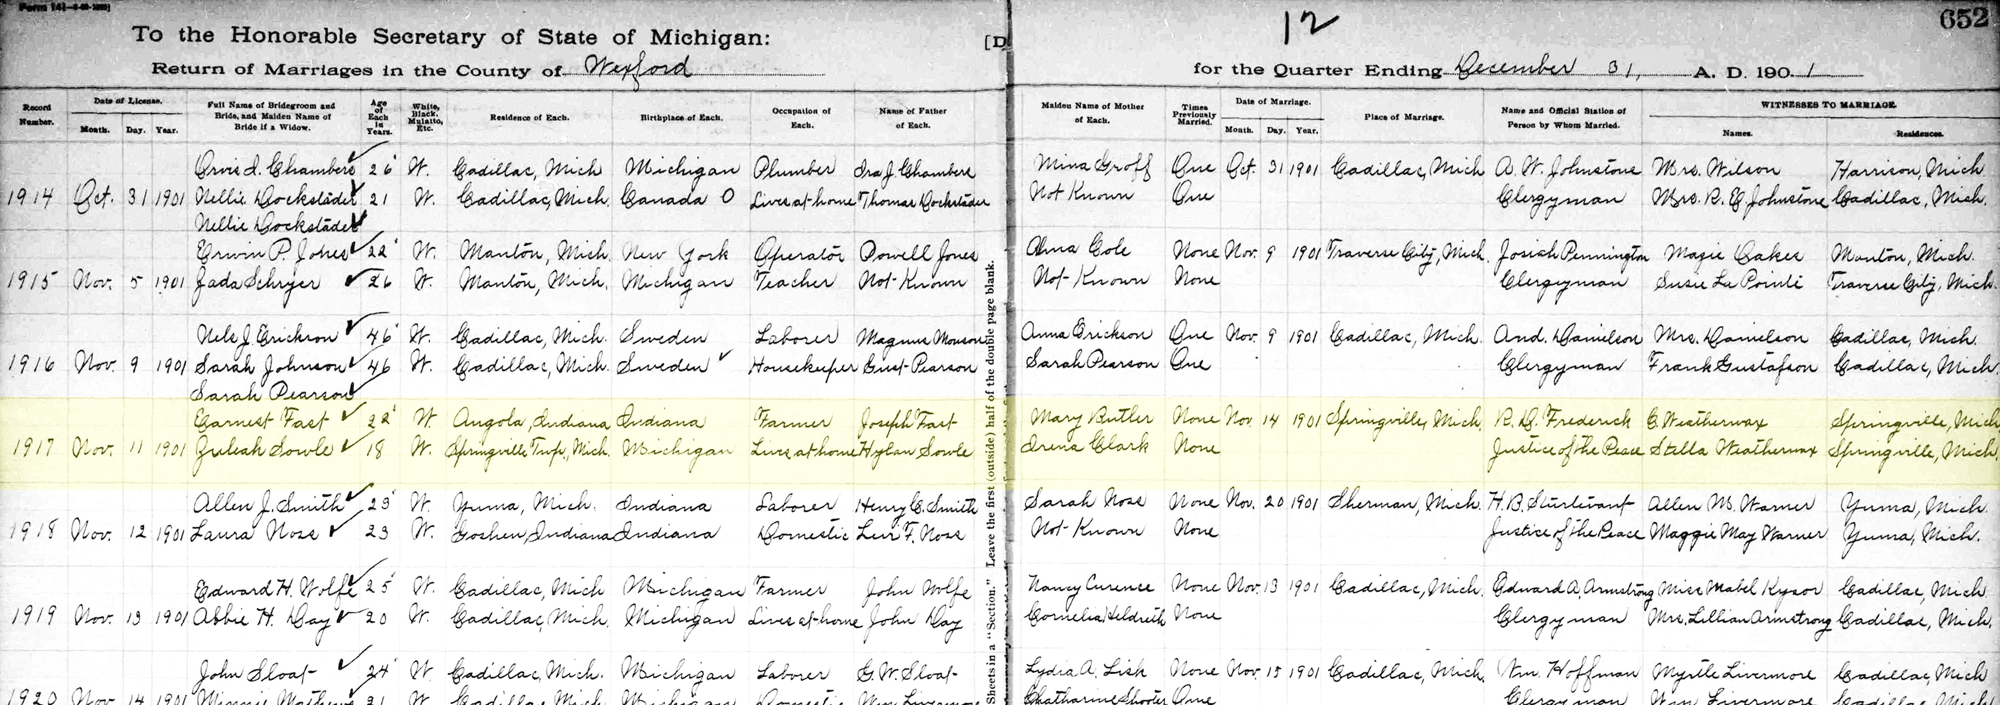 To the Honorable Secretary of State of Michigan:
Return of Marriages in the County of Wexford
12
652
for the Quarter Ending December 31, A. D. 190 1
Record Number. Date of License. Month. Day. Year. Full Name of Bridegroom and Bride, and Maiden Name of Bride if a Widow. Age of Each in Years. White, Black, Mulatto, Etc. Residence of Each. Birthplace of Each. Occupation of Each. Name of Father of Each.
Maiden Name of Mother of Each. Times Previously Married. Date of Marriage. Month. Day. Year. Place of Marriage. Name and Official Station of Person by Whom Married. WITNESSES TO MARRIAGE. Names. Residences.
Sheets in a "Section." Leave the first (outside) half of the double page blank.
Orvis I. Chambers 26 W. Cadillac, Mich Michigan Plumber Ira J. Chambers Mina Groff One Oct. 31 1901 Cadillac, Mich A. W. Johnstone Mrs. Wilson Harrison, Mich
1914 Oct. 31 1901 Nellie Dockstader 21 W. Cadillac, Mich. Canada O Lives at home Thomas Dockstader Not Known One Clergyman Mrs. R. E. Johnstone Cadillac, Mich.
Nellie Dockstader
Erwin P. Jones 22 W. Manton, Mich. New York Operator Powell Jones Alma Cole None Nov. 9 1901 Traverse City, Mich. Josiah Pennington Mazie Oakes Manton, Mich.
1915 Nov. 5 1901 Jada Schryer 26 W. Manton, Mich. Michigan Teacher Not Known Not Known None Clergyman Susie La Pointe Traverse City, Mich.
Nels J. Erickson 46 W. Cadillac, Mich. Sweden Laborer Magnus Monson Anna Erickson One Nov. 9 1901 Cadillac, Mich. And. Danielson Mrs. Danielson Cadillac, Mich.
1916 Nov. 9 1901 Sarah Johnson 46 W. Cadillac, Mich. Sweden Housekeeper Gust Pearson Sarah Pearson One Clergyman Frank Gustafson Cadillac, Mich.
Sarah Pearson
Earnest Fast 22 W. Angola, Indiana Indiana Farmer Joseph Fast Mary Butler None Nov. 14 1901 Springville, Mich. R. D. Frederick C. Weatherwax Springville, Mich.
1917 Nov. 11 1901 Zuleah Sowle 18 W. Springville Twp., Mich. Michigan Lives at home Hylan Sowle Irena Clark None Justice of the Peace Stella Weatherwax Springville, Mich.
Allen J. Smith 23 W. Yuma, Mich. Indiana Laborer Henry C. Smith Sarah Nose None Nov. 20 1901 Sherman, Mich. H. B. Sturtevant Allen M. Warner Yuma, Mich.
1918 Nov. 12 1901 Laura Nose 23 W. Goshen, Indiana Indiana Domestic Levi F. Nose Not Known None Justice of the Peace Maggie May Warner Yuma, Mich.
Edward H. Wolfe 25 W. Cadillac, Mich Michigan Farmer John Wolfe Nancy Curence None Nov. 13 1901 Cadillac, Mich. Edward A. Armstrong Miss Mabel Kysor Cadillac, Mich.
1919 Nov. 13 1901 Abbie H. Day 20 W. Cadillac, Mich. Michigan Lives at home John Day Cornelia Heldreth None Clergyman Mrs. Lillian Armstrong Cadillac, Mich.
John Sloat 24 W. Cadillac, Mich. Michigan Laborer G. W. Sloat Lydia A. Lish None Nov. 15 1901 Cadillac, Mich. Wm. Hoffman Myrtle Livermore Cadillac, Mich
1920 Nov. 14 1901 Minnie Mathews 21 W. Cadillac, Mich Michigan Domestic Wm. Livermore Chatharine Shooter One Clergyman Wm. Livermore Cadillac, Mich